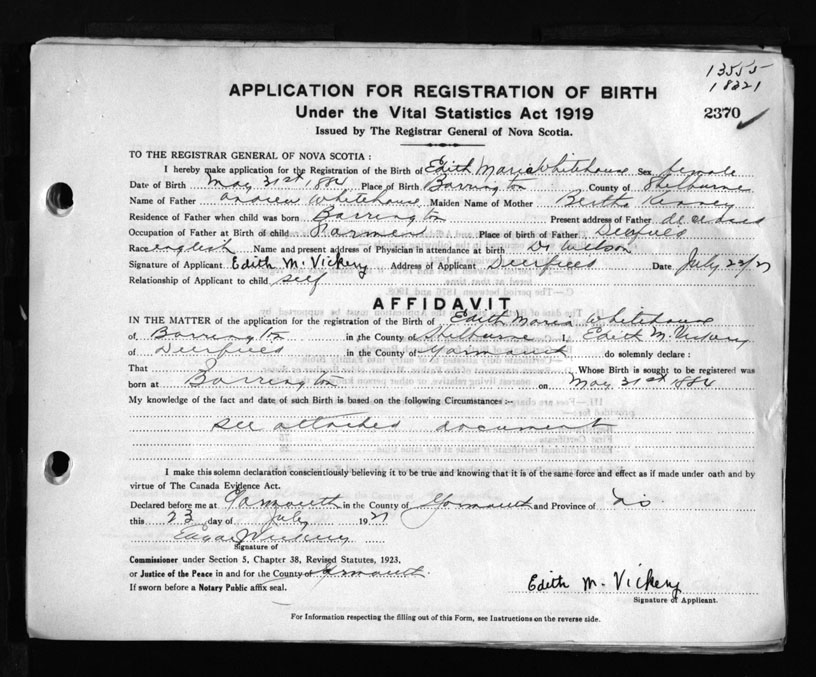 13555
18221
APPLICATION FOR REGISTRATION OF BIRTH
Under the Vital Statistics Act 1919
2370
Issued by The Registrar General of Nova Scotia.
TO THE REGISTRAR GENERAL OF NOVA SCOTIA :
I hereby make application for the Registration of the Birth of Edith Maria Whitehouse Sex female
Date of Birth May 31st 1884 Place of Birth Barrington County of Shelburne
Name of Father Andrew Whitehouse Maiden Name of Mother Bertha Kenney
Residence of Father when child was born Barrington Present address of Father deceased
Occupation of Father at Birth of child Place of birth of Father Deerfield
Race english Name and present address of Physician in attendance at birth Dr Wilson
Signature of Applicant Edith M. Vickery Address of Applicant Deerfield Date July 23/27
Relationship of Applicant to child self
AFFIDAVIT
IN THE MATTER of the application for the registration of the Birth of Edith Maria Whitehouse
of Barrington in the County of Shelburne I, Edith M. Vickery
of Deerfield in the County of Yarmouth do solemnly declare :
That Whose Birth is sought to be registered was
born at Barrington on May 31st 1884
My knowledge of the fact and date of such Birth is based on the following Circumstances :-
see attached document
I make this solemn declaration conscientiously believing it to be true and knowing that it is of the same force and effect as if made under oath and by
virtue of The Canada Evidence Act.
Declared before me at Yarmouth in the County of Yarmouth and Province of NS
this 23 day of July 1927
Signature of
Commissioner under Section 5, Chapter 38, Revised Statutes, 1923,
or Justice of the Peace in and for the County of Yarmouth.
If sworn before a Notary Public affix seal.
Edith M. Vickery
Signature of Applicant.
For Information respecting the filling out of this Form, see Instructions on the reverse side.